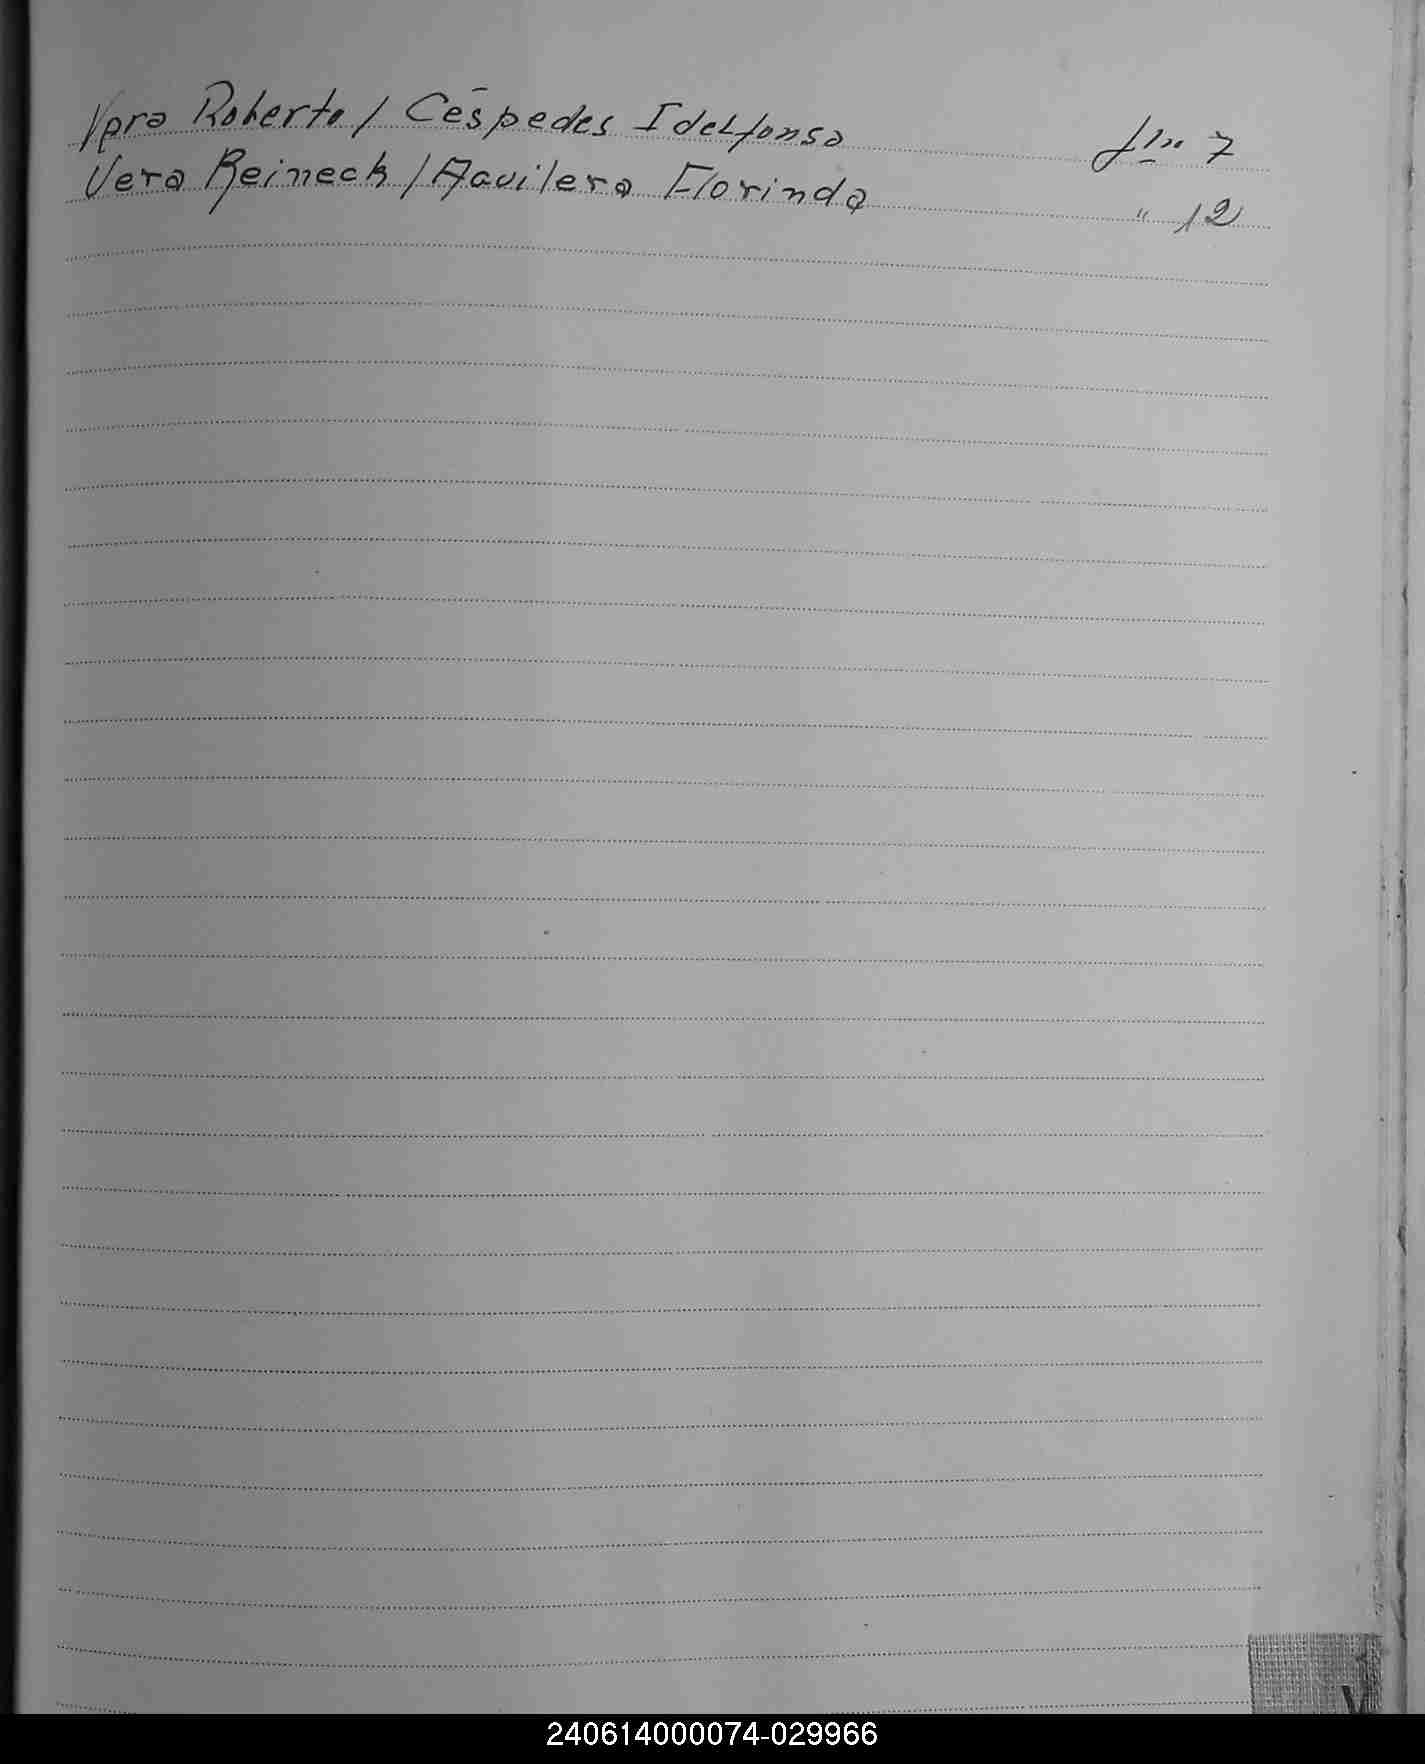 Vera Roberto / Céspedes Idelfonso 7
Vera Reineck / Aguilera Florinda " 12
V
240614000074-029966